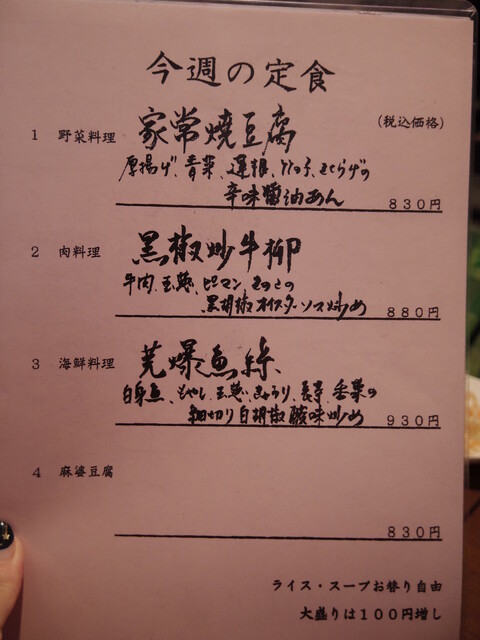 今週の定食
(税込価格)
1 野菜料理 家常焼豆腐
厚揚げ、青菜、蓮根、竹の子、きくらげの
辛味醤油あん
830円
2 肉料理 黒椒炒牛柳
牛肉、玉葱、ピーマン、きのこの
黒胡椒オイスターソース炒め
880円
3 海鮮料理 芫爆魚絲
白身魚、もやし、玉葱、きゅうり、長葱、香菜の
細切り白胡椒酸味炒め
930円
4 麻婆豆腐
830円
ライス・スープお替り自由
大盛りは100円増し